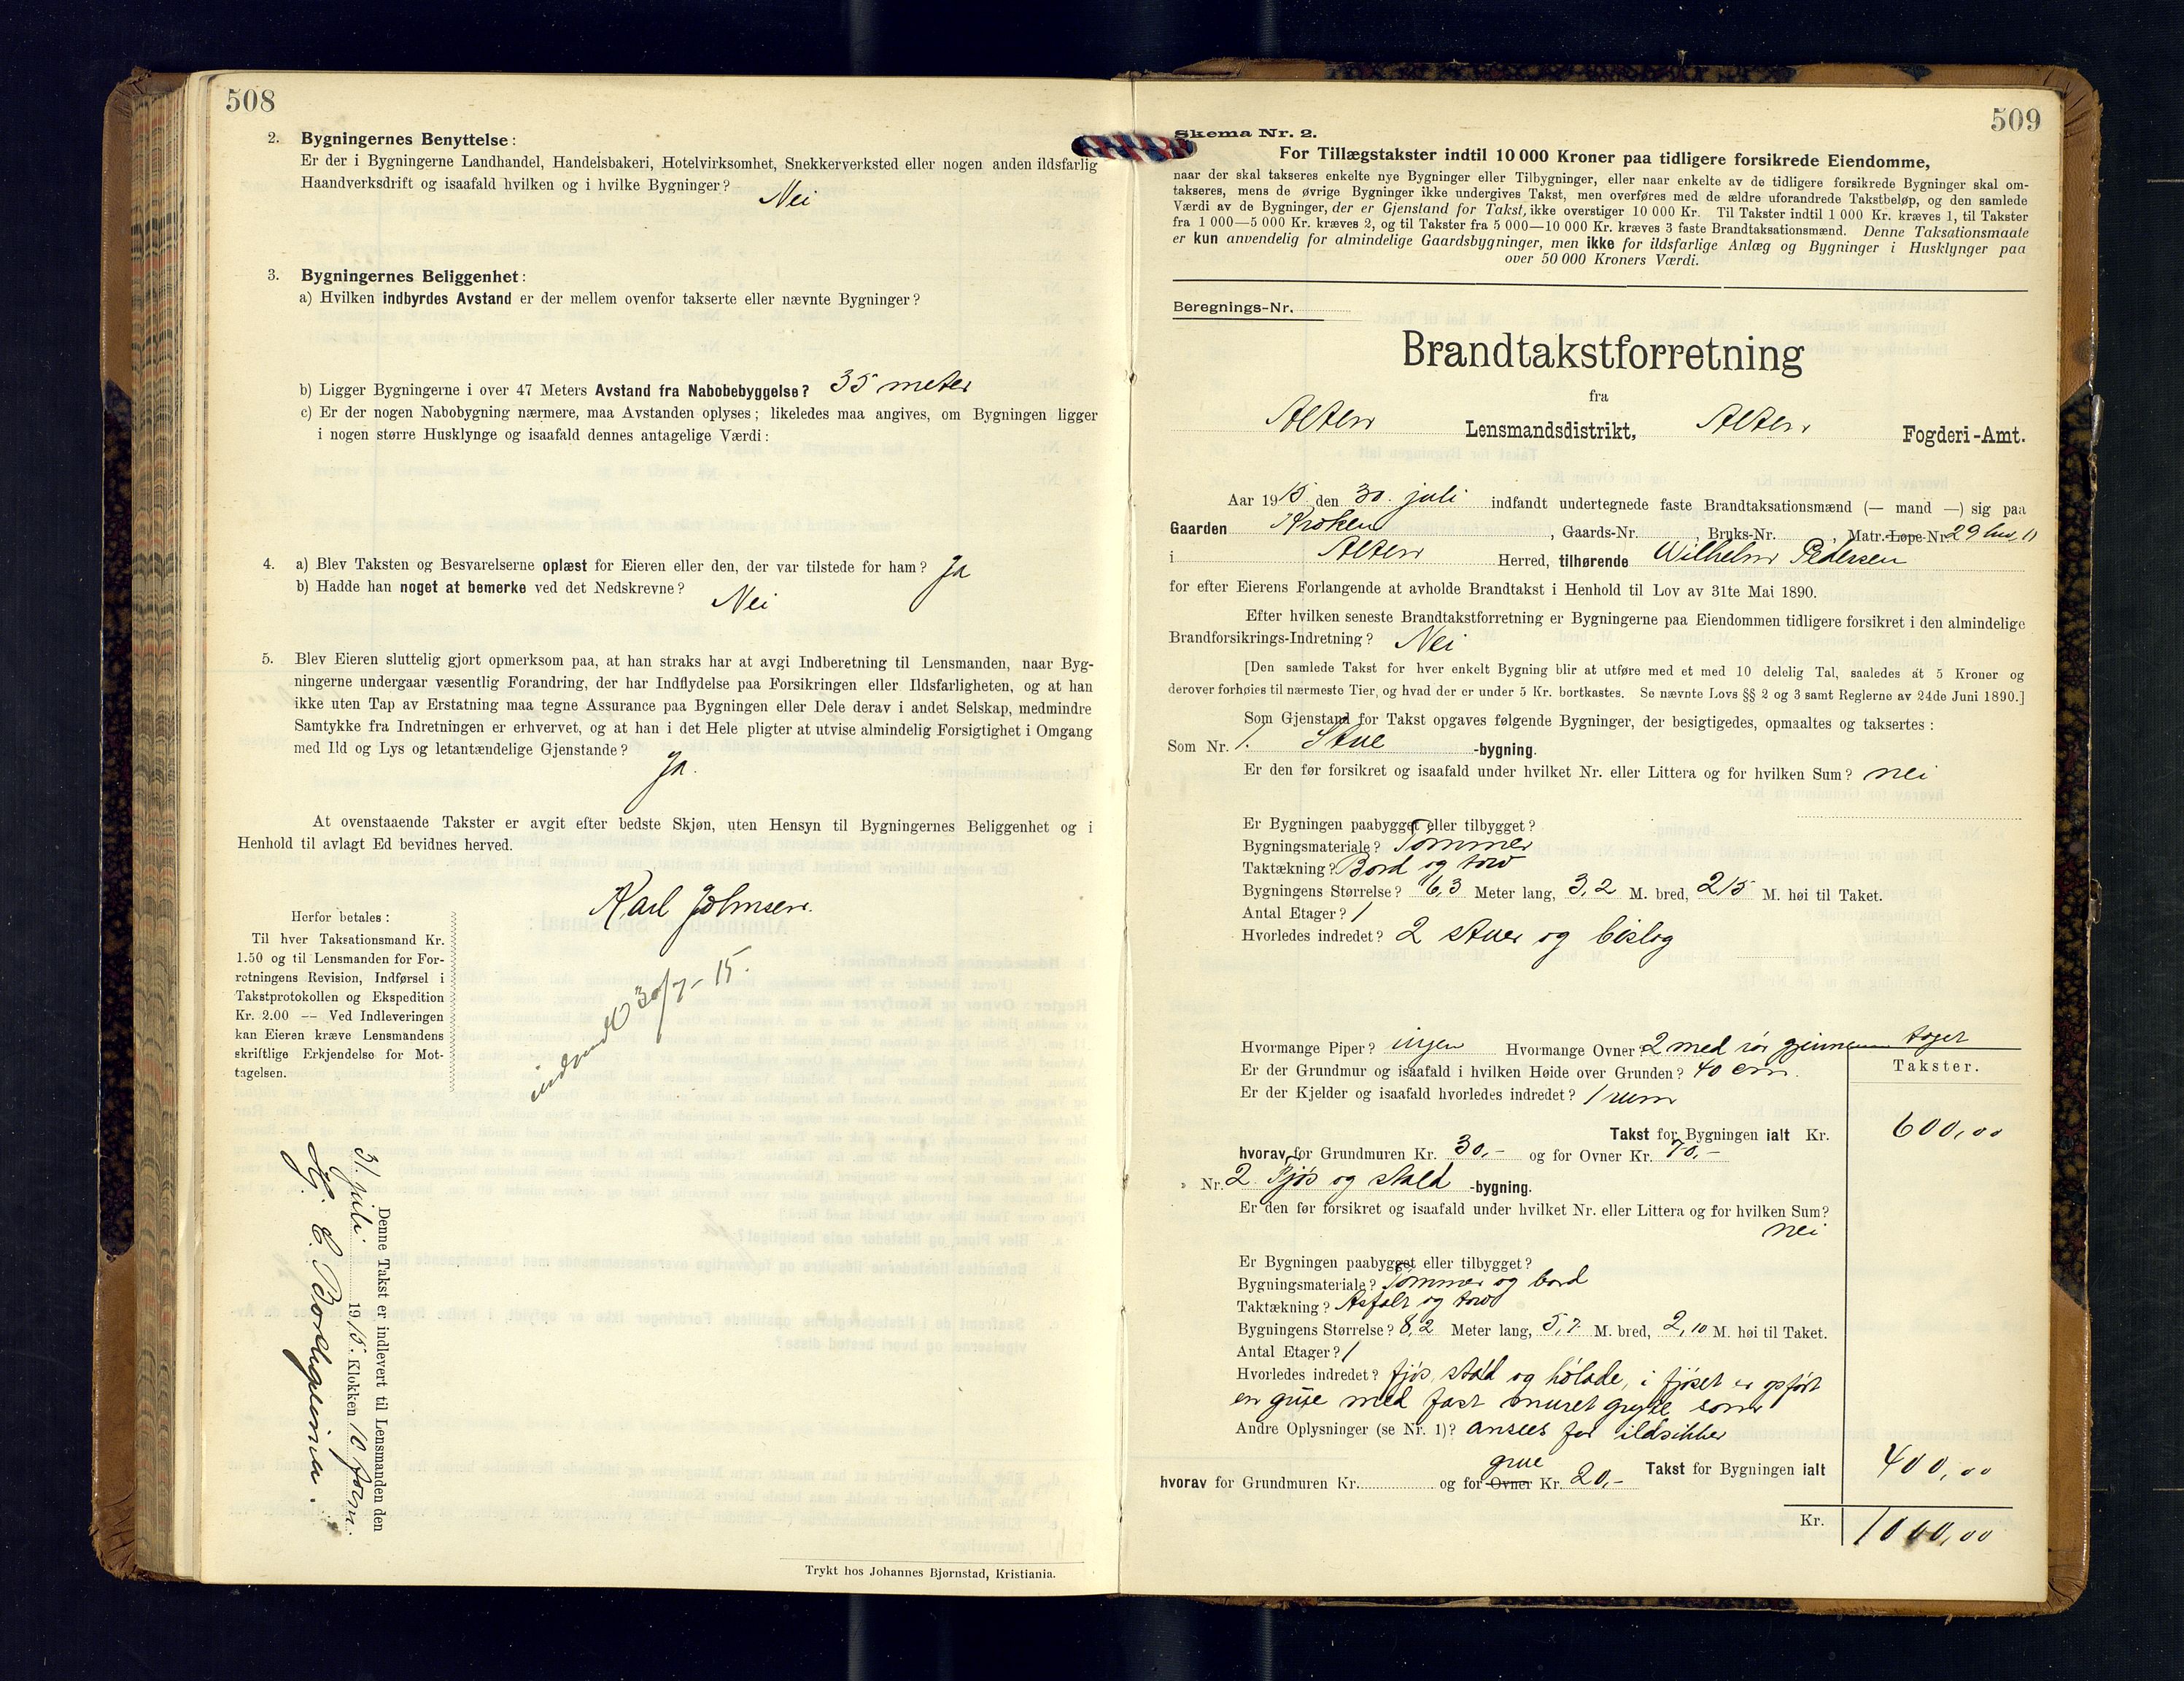 508
2. Bygningernes Benyttelse:
Er der i Bygningerne Landhandel, Handelsbakeri, Hotelvirksomhet, Snekkerverksted eller nogen anden ildsfarlig
Haandverksdrift og isaafald hvilken og i hvilke Bygninger? Nei
3. Bygningernes Beliggenhet:
a) Hvilken indbyrdes Avstand er der mellem ovenfor takserte eller nævnte Bygninger?
b) Ligger Bygningerne i over 47 Meters Avstand fra Nabobebyggelse? 35 meter
c) Er der nogen Nabobygning nærmere, maa Avstanden oplyses; likeledes maa angives, om Bygningen ligger
i nogen større Husklynge og isaafald dennes antagelige Værdi:
4. a) Blev Taksten og Besvarelserne oplæst for Eieren eller den, der var tilstede for ham? Ja
b) Hadde han noget at bemerke ved det Nedskrevne? Nei
5. Blev Eieren sluttelig gjort opmerksom paa, at han straks har at avgi Indberetning til Lensmanden, naar Byg-
ningerne undergaar væsentlig Forandring, der har Indflydelse paa Forsikringen eller Ildsfarligheten, og at han
ikke uten Tap av Erstatning maa tegne Assurance paa Bygningen eller Dele derav i andet Selskap, medmindre
Samtykke fra Indretningen er erhvervet, og at han i det Hele pligter at utvise almindelig Forsigtighet i Omgang
med Ild og Lys og letantændelige Gjenstande?
Ja.
At ovenstaaende Takster er avgit efter bedste Skjøn, uten Hensyn til Bygningernes Beliggenhet og i
Henhold til avlagt Ed bevidnes herved.
Karl Johnsen.
Herfor betales:
Til hver Taksationsmand Kr.
1.50 og til Lensmanden for For-
retningens Revision, Indførsel i
Takstprotokollen og Ekspedition
Kr. 2.00 — Ved Indleveringen
kan Eieren kræve Lensmandens
skriftlige Erkjendelse for Mot-
tagelsen.
indsendt 30/7-15.
Denne Takst er indlevert til Lensmanden den
31. juli 1915. Klokken 10 form.
Trykt hos Johannes Bjørnstad, Kristiania.
509
Skema Nr. 2.
For Tillægstakster indtil 10 000 Kroner paa tidligere forsikrede Eiendomme,
naar der skal takseres enkelte nye Bygninger eller Tilbygninger, eller naar enkelte av de tidligere forsikrede Bygninger skal om-
takseres, mens de øvrige Bygninger ikke undergives Takst, men overføres med de ældre uforandrede Takstbeløp, og den samlede
Værdi av de Bygninger, der er Gjenstand for Takst, ikke overstiger 10 000 Kr. Til Takster indtil 1 000 Kr. kræves 1, til Takster
fra 1 000—5 000 Kr. kræves 2, og til Takster fra 5 000—10 000 Kr. kræves 3 faste Brandtaksationsmænd. Denne Taksationsmaate
er kun anvendelig for almindelige Gaardsbygninger, men ikke for ildsfarlige Anlæg og Bygninger i Husklynger paa
over 50 000 Kroners Værdi.
Beregnings-Nr.
Brandtakstforretning
fra
Alten Lensmandsdistrikt, Alten Fogderi-Amt.
Aar 1915 den 30. juli indfandt undertegnede faste Brandtaksationsmænd (— mand —) sig paa
Gaarden Kroken, Gaards-Nr. , Bruks-Nr. , Matr.-Løpe-Nr. 29
i Alten Herred, tilhørende Wilhelm Pedersen
for efter Eierens Forlangende at avholde Brandtakst i Henhold til Lov av 31te Mai 1890.
Efter hvilken seneste Brandtakstforretning er Bygningerne paa Eiendommen tidligere forsikret i den almindelige
Brandforsikrings-Indretning? Nei
[Den samlede Takst for hver enkelt Bygning blir at utføre med et med 10 delelig Tal, saaledes at 5 Kroner og
derover forhøies til nærmeste Tier, og hvad der er under 5 Kr. bortkastes. Se nævnte Lovs §§ 2 og 3 samt Reglerne av 24de Juni 1890.]
Som Gjenstand for Takst opgaves følgende Bygninger, der besigtigedes, opmaaltes og taksertes:
Som Nr. 1. Stue -bygning.
Er den før forsikret og isaafald under hvilket Nr. eller Littera og for hvilken Sum? nei
Er Bygningen paabygget eller tilbygget?
Bygningsmateriale? Tømmer
Taktækning? Bord og torv
Bygningens Størrelse? 6,3 Meter lang, 3,2 M. bred, 2,15 M. høi til Taket.
Antal Etager? 1
Hvorledes indredet? 2 stuer og bislag
Hvormange Piper? ingen Hvormange Ovner? 2 med rør gjennem taget
Er der Grundmur og isaafald i hvilken Høide over Grunden? 40 cm.
Takster.
Er der Kjelder og isaafald hvorledes indredet? 1 rum
Takst for Bygningen ialt Kr. 600,00
hvorav for Grundmuren Kr. 30,- og for Ovner Kr. 70,-
» Nr. 2 Fjøs og stald -bygning.
Er den før forsikret og isaafald under hvilket Nr. eller Littera og for hvilken Sum?
nei
Er Bygningen paabygget eller tilbygget?
Bygningsmateriale? Tømmer og bord
Taktækning? Asfalt og torv
Bygningens Størrelse? 8,2 Meter lang, 5,7 M. bred, 2,10 M. høi til Taket.
Antal Etager? 1
Hvorledes indredet? fjøs, stald og hølade, i fjøset er opført
en grue med fast muret gryte som
Andre Oplysninger (se Nr. 1)? ansees for ildsikker
Takst for Bygningen ialt 400,00
hvorav for Grundmuren Kr. og for Ovner grue Kr. 20,-
Kr. 1000,00